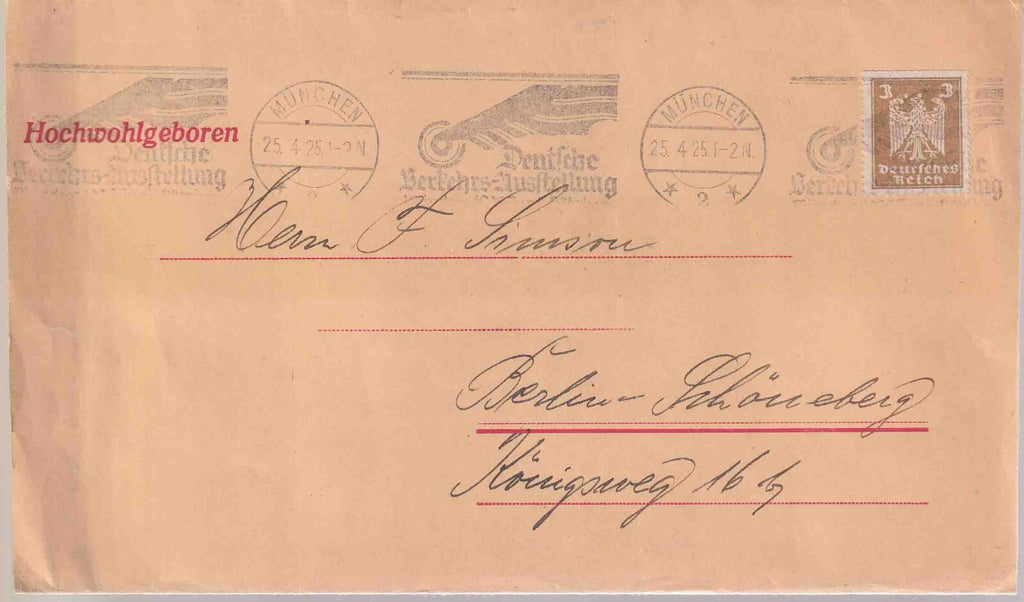 Hochwohlgeboren
MÜNCHEN
25. 4. 25. 1-2 N.
2
Deutsche
Verkehrs-Ausstellung
MÜNCHEN
25. 4 25. 1-2 N.
2
3 3
Deutsches
Reich
Herrn F. Simson
Berlin-Schöneberg
Königsweg 16 b